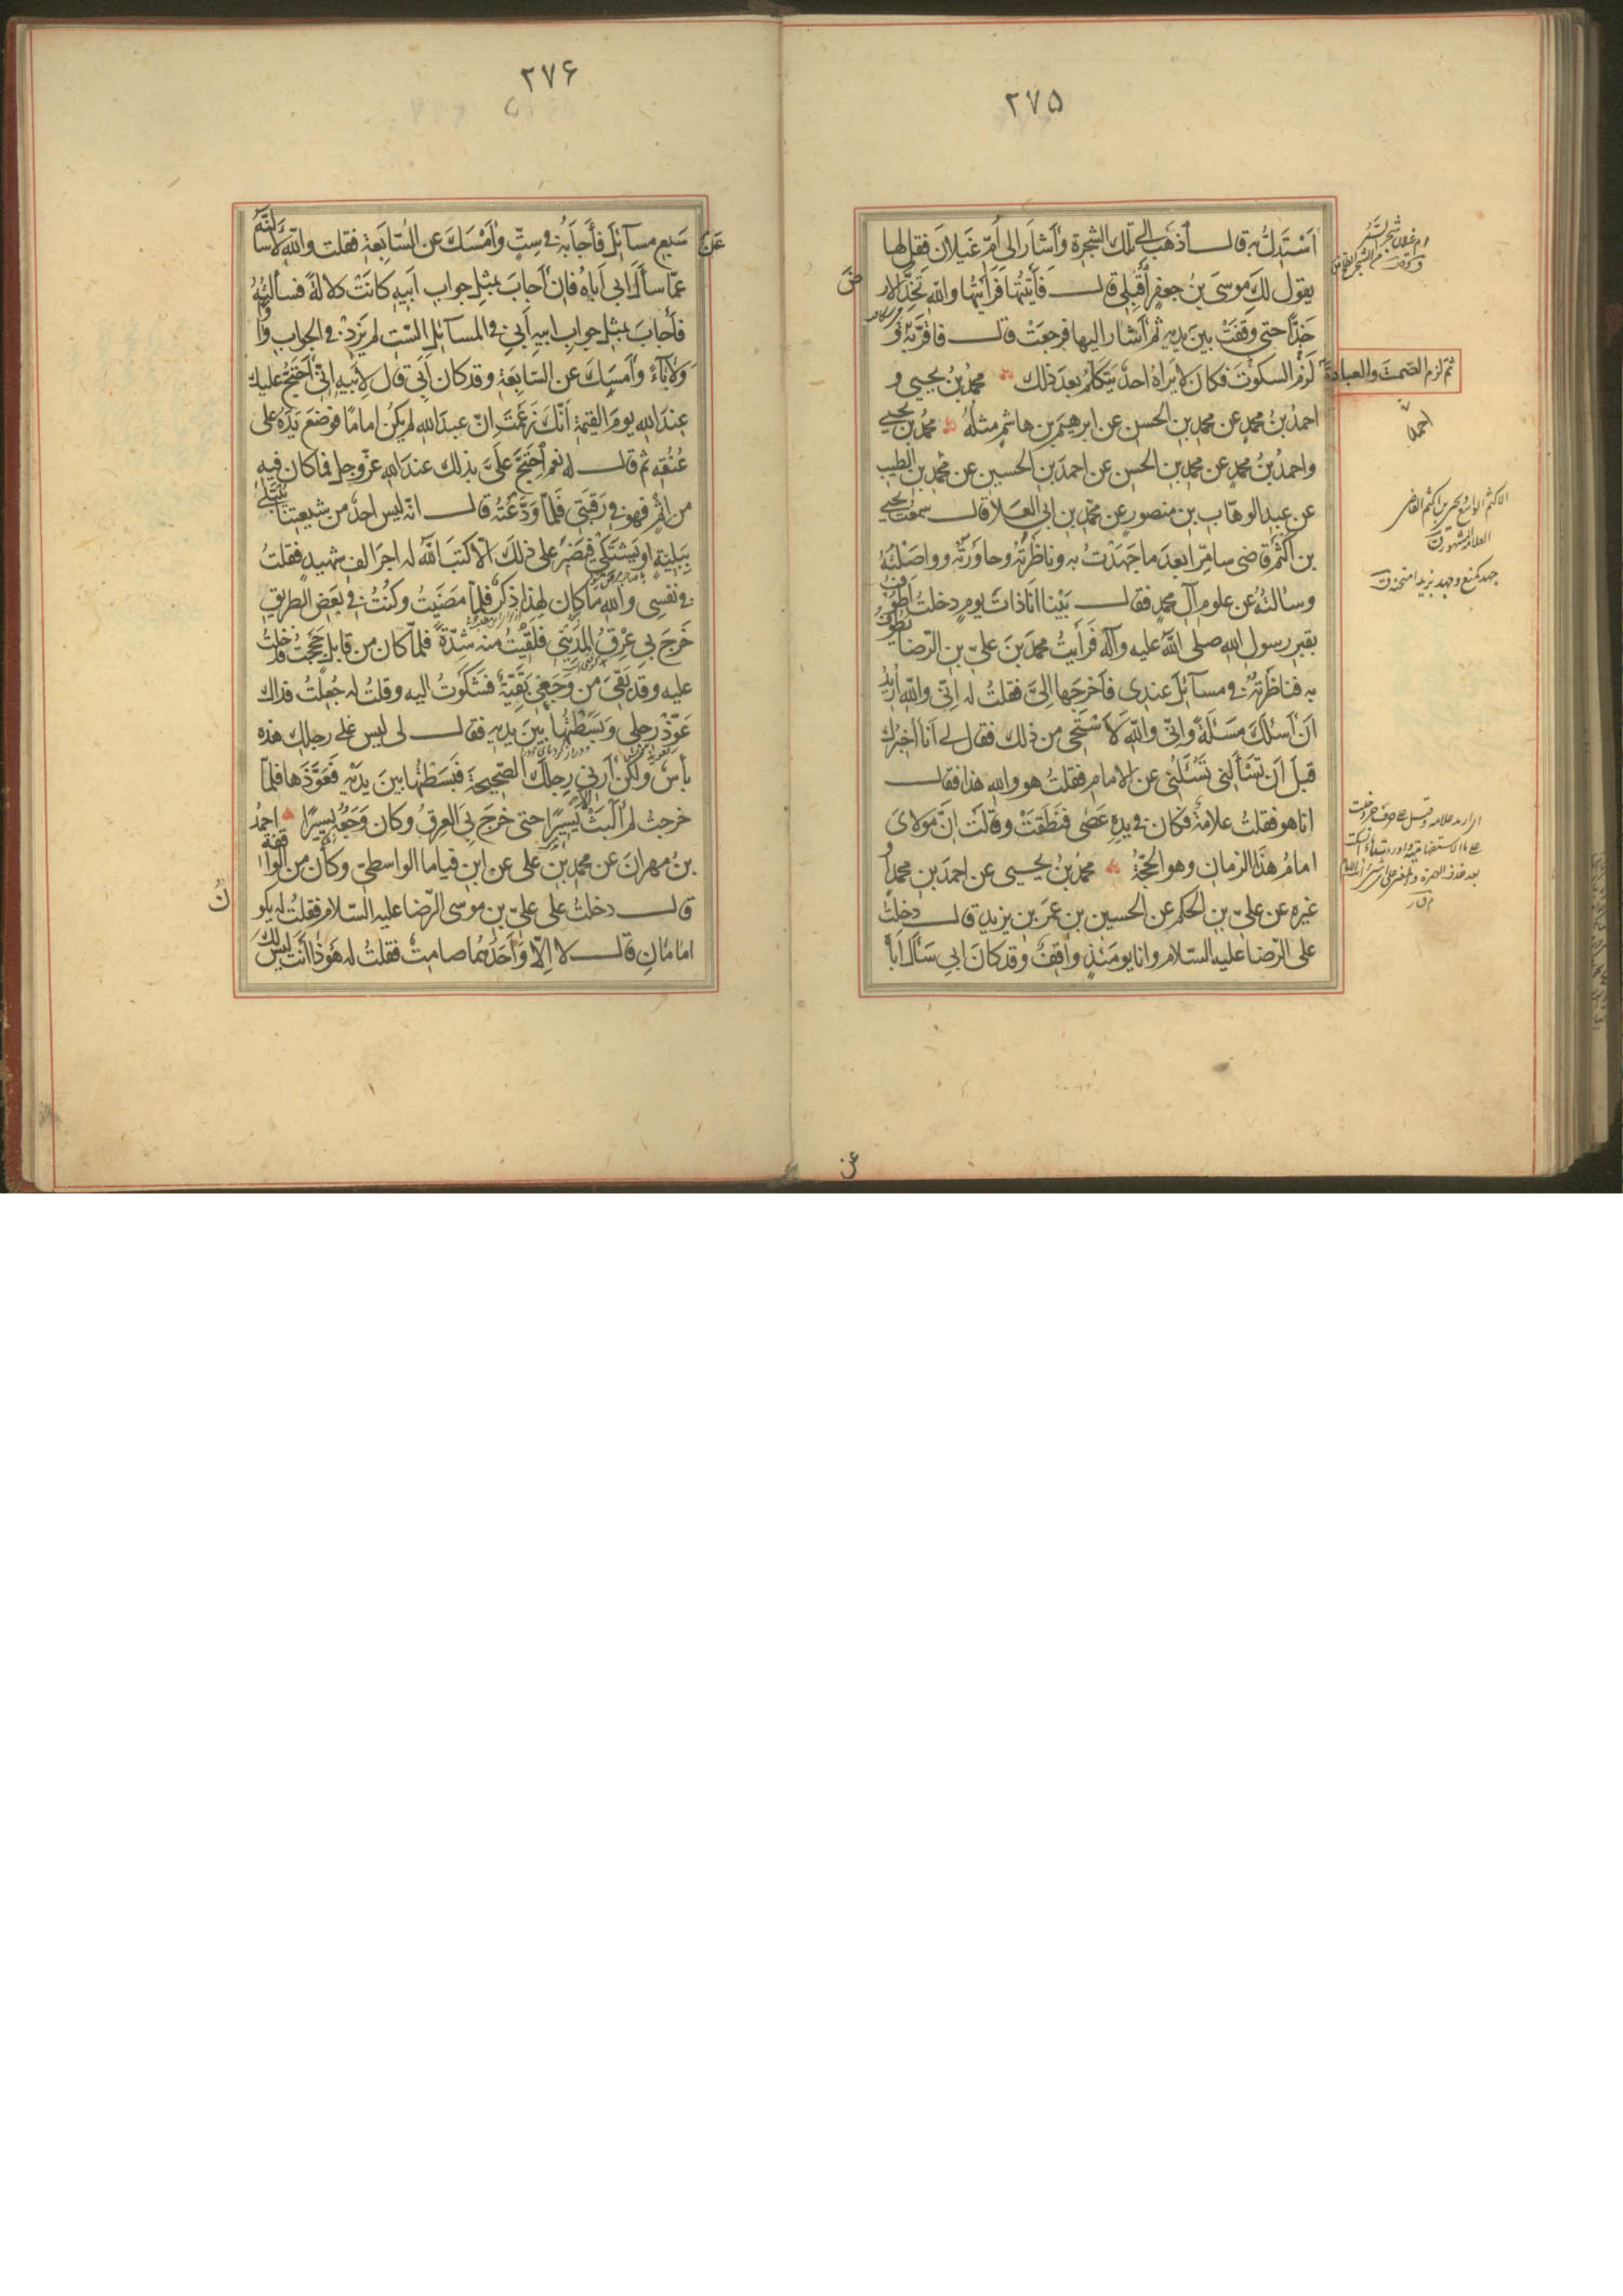 ٢٧۵
اَسْتَدِلُّ به قال اذهَب الى تلك الشجرة وأشار الى اُمّ غَيلان فقل لها
يقول لكِ موسى بنُ جعفرٍ أَقبِلى قال فَأَتَيتُها فَرَأيتُها والله تَخُدُّ الارض
خَدّاً حتى وقفَتْ بين يديه ثم أشار اليها فرجعَتْ قال فاقَرَّ به و
لَزِمَ السكوتَ فكان لا يَراهُ احدٌ يتكلّمُ بعد ذلك محمدُ بنُ يحيى و
ثمّ لزم الصّمتَ والعبادةَ
احمدُ بنُ محمدٍ عن محمد بن الحسن عن ابرهيم بن هاشمٍ مثلَهُ محمدُ بن يحيى
واحمدُ بنُ محمدٍ عن محمد بن الحسن عن احمدَ بن الحسين عن محمد بن الطيب
عن عبد الوهّاب بن منصورٍ عن محمّد بن ابى العلا قال سمعتُ يحيى
بن اَكثَمَ قاضى سامِرّا بعدَ ما جَهَدْتُ به وناظرتُهُ وحاورتُهُ وواصَلْتُهُ
وسالتُهُ عن علوم آلِ محمدٍ فقال بَيْنا انا ذاتَ يومٍ دخلتُ اَطوُفُ
بقبرِ رسول الله صلى الله عليه وآله فَرَأيتُ محمدَ بنَ علىّ بن الرّضا يَطوُفُ
به فناظَرتُهُ فى مسآئلَ عندى فاَخرجَها اِلىَّ فقلتُ له اِنّى والله اُريدُ
اَنْ اَسئلَكَ مَسئلةً وانّى والله لَاَسْتَحى من ذلك فقال لى اَنا اُخبرُك
قبلَ اَن تَسْألَنى تَسْئَلُنى عن الامام فقلتُ هو والله هذا فقال
انا هو فقلتُ علامةً فكان فى يدِهِ عَصًى فنَطَقَتْ وقالَتْ اِنّ مولاىَ
امامُ هذا الزمان وهو الحُجّةُ محمدُ بنُ يحيى عن احمدَ بن محمدٍ او
غيره عن علىّ بن الحكم عن الحسين بن عمر بن يزيد قال دخلتُ
على الرّضا عليه السّلام وانا يومئذٍ واقِفٌ وقد كان ابى سَألَ اَباهُ
عن
٢٧۶
عَن سَبعِ مسآئلَ فأَجابهُ فى سِتٍّ وأَمْسَكَ عن السّابِعَةِ فقلت والله لَاَسألَنّهُ
عمّا سألَ ابى اَباهُ فاِنْ أجابَ بمثلِ جواب اَبيهِ كانَتْ دلالةً فسألتُهُ
فأَجابَ بمثلِ جوابِ ابيهِ اَبى فى المسآئل السّت لم يَزِدْ فى الجواب واوًا
ولا يآءً وأَمسَكَ عن السّابِعَةِ وقد كان اَبى قال لِاَبيهِ اِنّى اَحتَجُّ عليك
عندَ الله يومَ القيٰمة اَنّكَ زَعَمْتَ انّ عبدَ الله لم يكُن امامًا فوضَعَ يَدَهُ على
عُنُقِهِ ثم قال له نعم اِحتَجَّ عَلىَّ بذلك عندَ الله عزّ وجل فما كان فيه
من اِثمٍ فهو فى رَقَبَتى فلمّا ودَّعتُهُ قال انّه ليس احدٌ من شيعتِنا يُبتَلى
بِبَليّةٍ او يَشتَكى فيَصْبِرُ على ذلك اِلّا كتبَ الله له اجرَ الفِ شهيدٍ فقلتُ
فى نفسى والله ما كان لهذا ذِكرٌ فلمّا مضَيتُ وكُنتُ فى بَعضِ الطريقِ
خَرَجَ بى عِرْقُ المَدينى فلَقيتُ منه شِدّةً فلمّا كان من قابلٍ حَجَجتُ فدخلتُ
عليه وقد بَقِىَ من وَجَعى بَقيّةٌ فشَكَوتُ اليه وقلتُ له جُعِلتُ فداك
عَوّذْ رِجلى وبَسَطْتُها بينَ يديه فقال لى ليس على رجلك هذه
بأسٌ ولكن اَرِنى رِجلَك الصّحيحةَ فبَسَطْتُها بينَ يدَيْهِ فعَوَّذَها فلمّا
خرجتُ لم اَلبَثْ الّا يَسيرًا حتى خَرَجَ بى العِرقُ وكان وَجَعُهُ يسيرًا احمدُ
بنُ مهرانَ عن محمد بن على عن ابن قياما الواسطىّ وكان من الواقفة
قال دخلتُ على علىّ بن موسى الرّضا عليه السّلام فقلتُ له يكونُ
امامانِ قال لا اِلّا واَحَدُهُما صامِتٌ فقلتُ له هُوَ ذا اَنتَ ليس لك